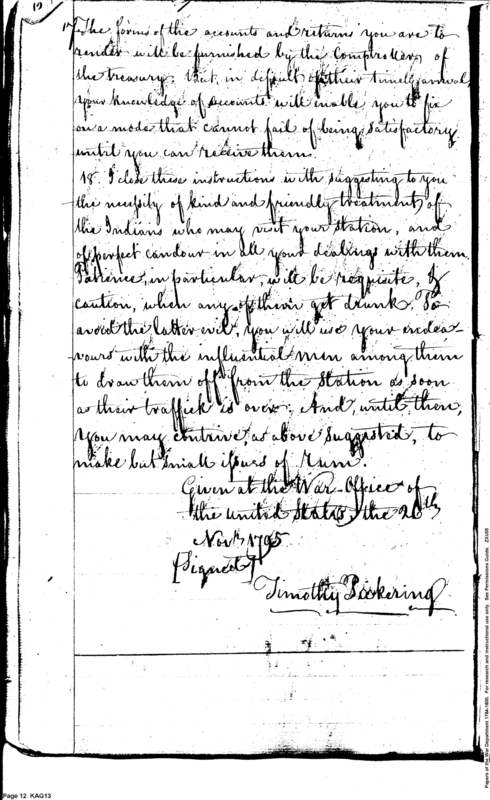 12
17. The forms of the accounts and returns you are to
render will be furnished by the Comptroller of
the treasury; But, in default of their timely arrival,
your knowledge of accounts will enable you to fix
on a mode that cannot fail of being satisfactory
until you can receive them.
18. I close these instructions with suggesting to you
the necessity of kind and friendly treatment of
the Indians who may visit your station, and
of perfect candour in all your dealings with them
Patience, in particular, will be requisite, &
caution, when any of them get drunk. To
avoid the latter evil, you will use your endea-
vours with the influential men among them
to draw them off from the Station as soon
as their traffick is over; And, until then,
you may contrive, as above suggested, to
make but small issues of Rum.
Given at the War-Office of
the United States, the 26th
Novr. 1795
[Signed]
Timothy Pickering
Page 12 KAG13
Papers of the War Department 1784-1800. For research and instructional use only. See Permissions Guide. ZXU05